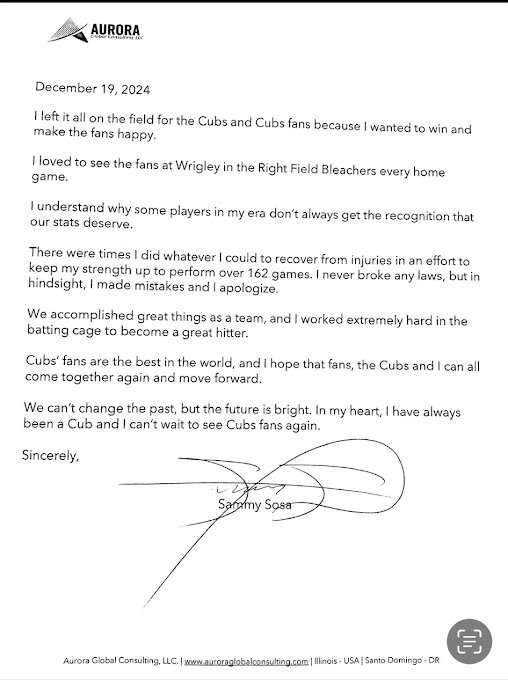 AURORA
Global Consulting LLC
December 19, 2024
I left it all on the field for the Cubs and Cubs fans because I wanted to win and
make the fans happy.
I loved to see the fans at Wrigley in the Right Field Bleachers every home
game.
I understand why some players in my era don't always get the recognition that
our stats deserve.
There were times I did whatever I could to recover from injuries in an effort to
keep my strength up to perform over 162 games. I never broke any laws, but in
hindsight, I made mistakes and I apologize.
We accomplished great things as a team, and I worked extremely hard in the
batting cage to become a great hitter.
Cubs' fans are the best in the world, and I hope that fans, the Cubs and I can all
come together again and move forward.
We can't change the past, but the future is bright. In my heart, I have always
been a Cub and I can't wait to see Cubs fans again.
Sincerely,
Sammy Sosa
Aurora Global Consulting, LLC. | www.auroraglobalconsulting.com | Illinois - USA | Santo Domingo - DR